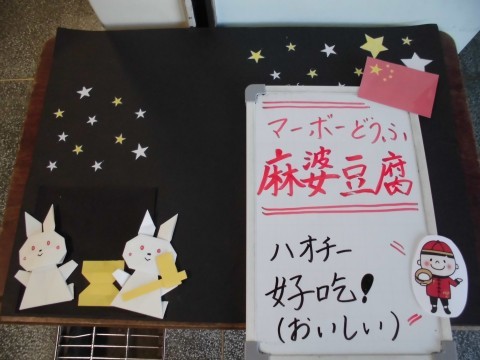 マーボーどうふ
麻婆豆腐
ハオチー
好吃!
(おいしい)